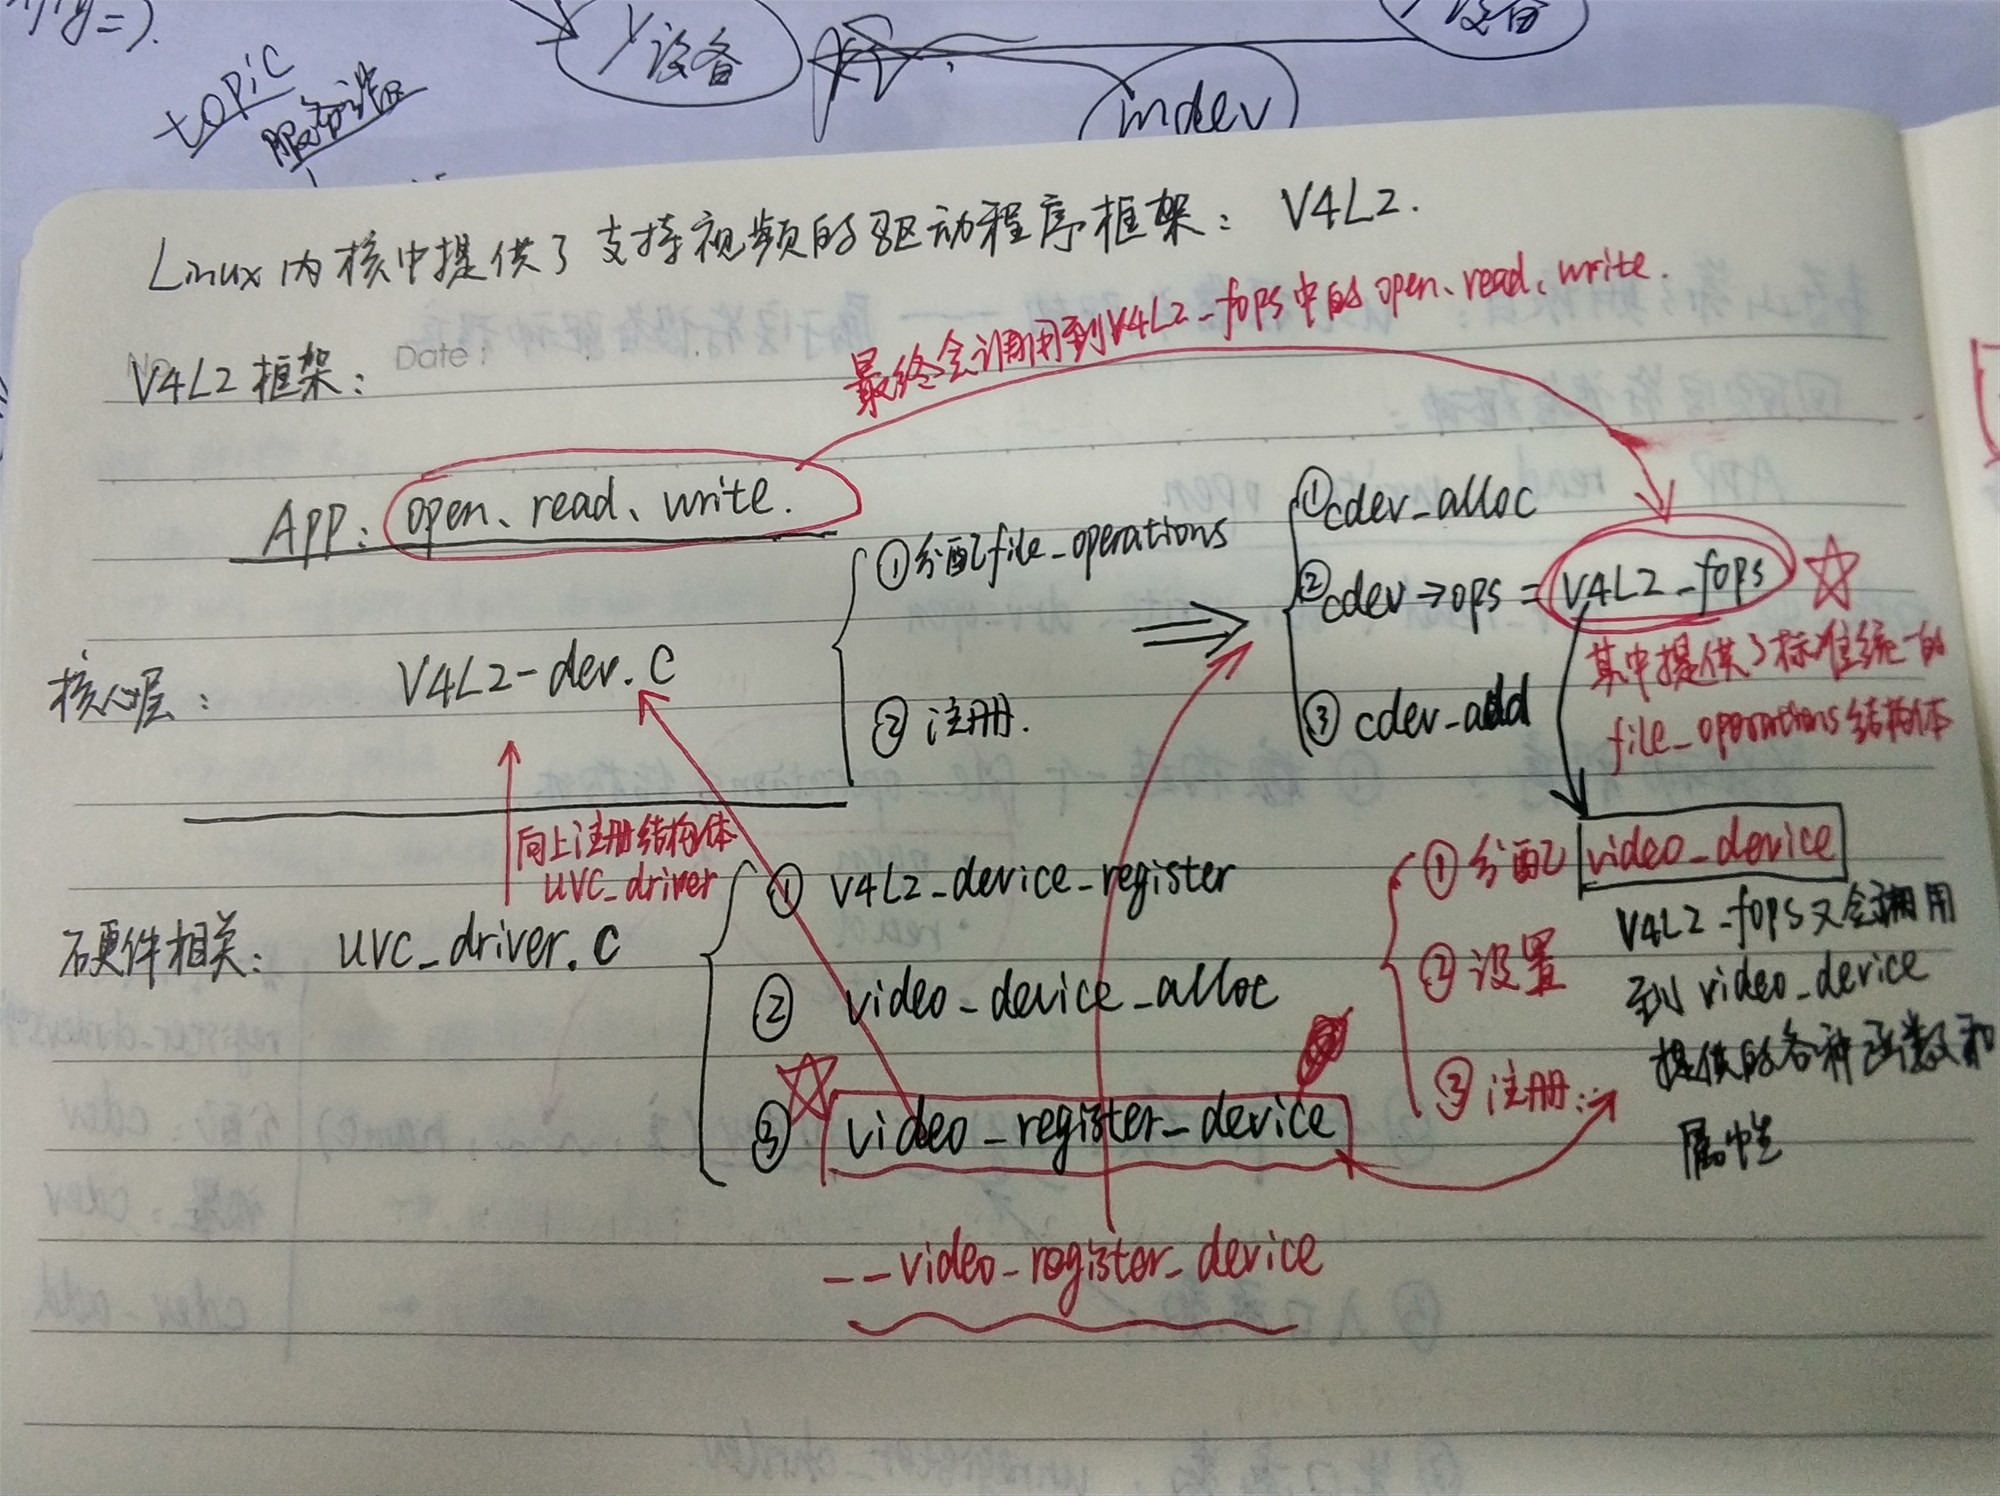 topic
设备
设备
indev
Linux 内核中提供了支持视频的驱动程序框架: V4L2.
最终会调用到V4L2_fops中的open、read、write.
Date:
V4L2 框架:
APP: open、read、write.
①分配file_operations
②注册.
①cdev_alloc
②cdev→ops = V4L2_fops
③cdev_add
其中提供了标准统一的
file_operations结构体
核心层:
V4L2-dev.c
向上注册结构体
uvc_driver
硬件相关:
uvc_driver.c
① V4L2_device_register
② video_device_alloc
③ video_register_device
①分配 video_device
②设置
③注册:
V4L2_fops又会调用
到video_device
提供的各种函数和
属性
__video_register_device